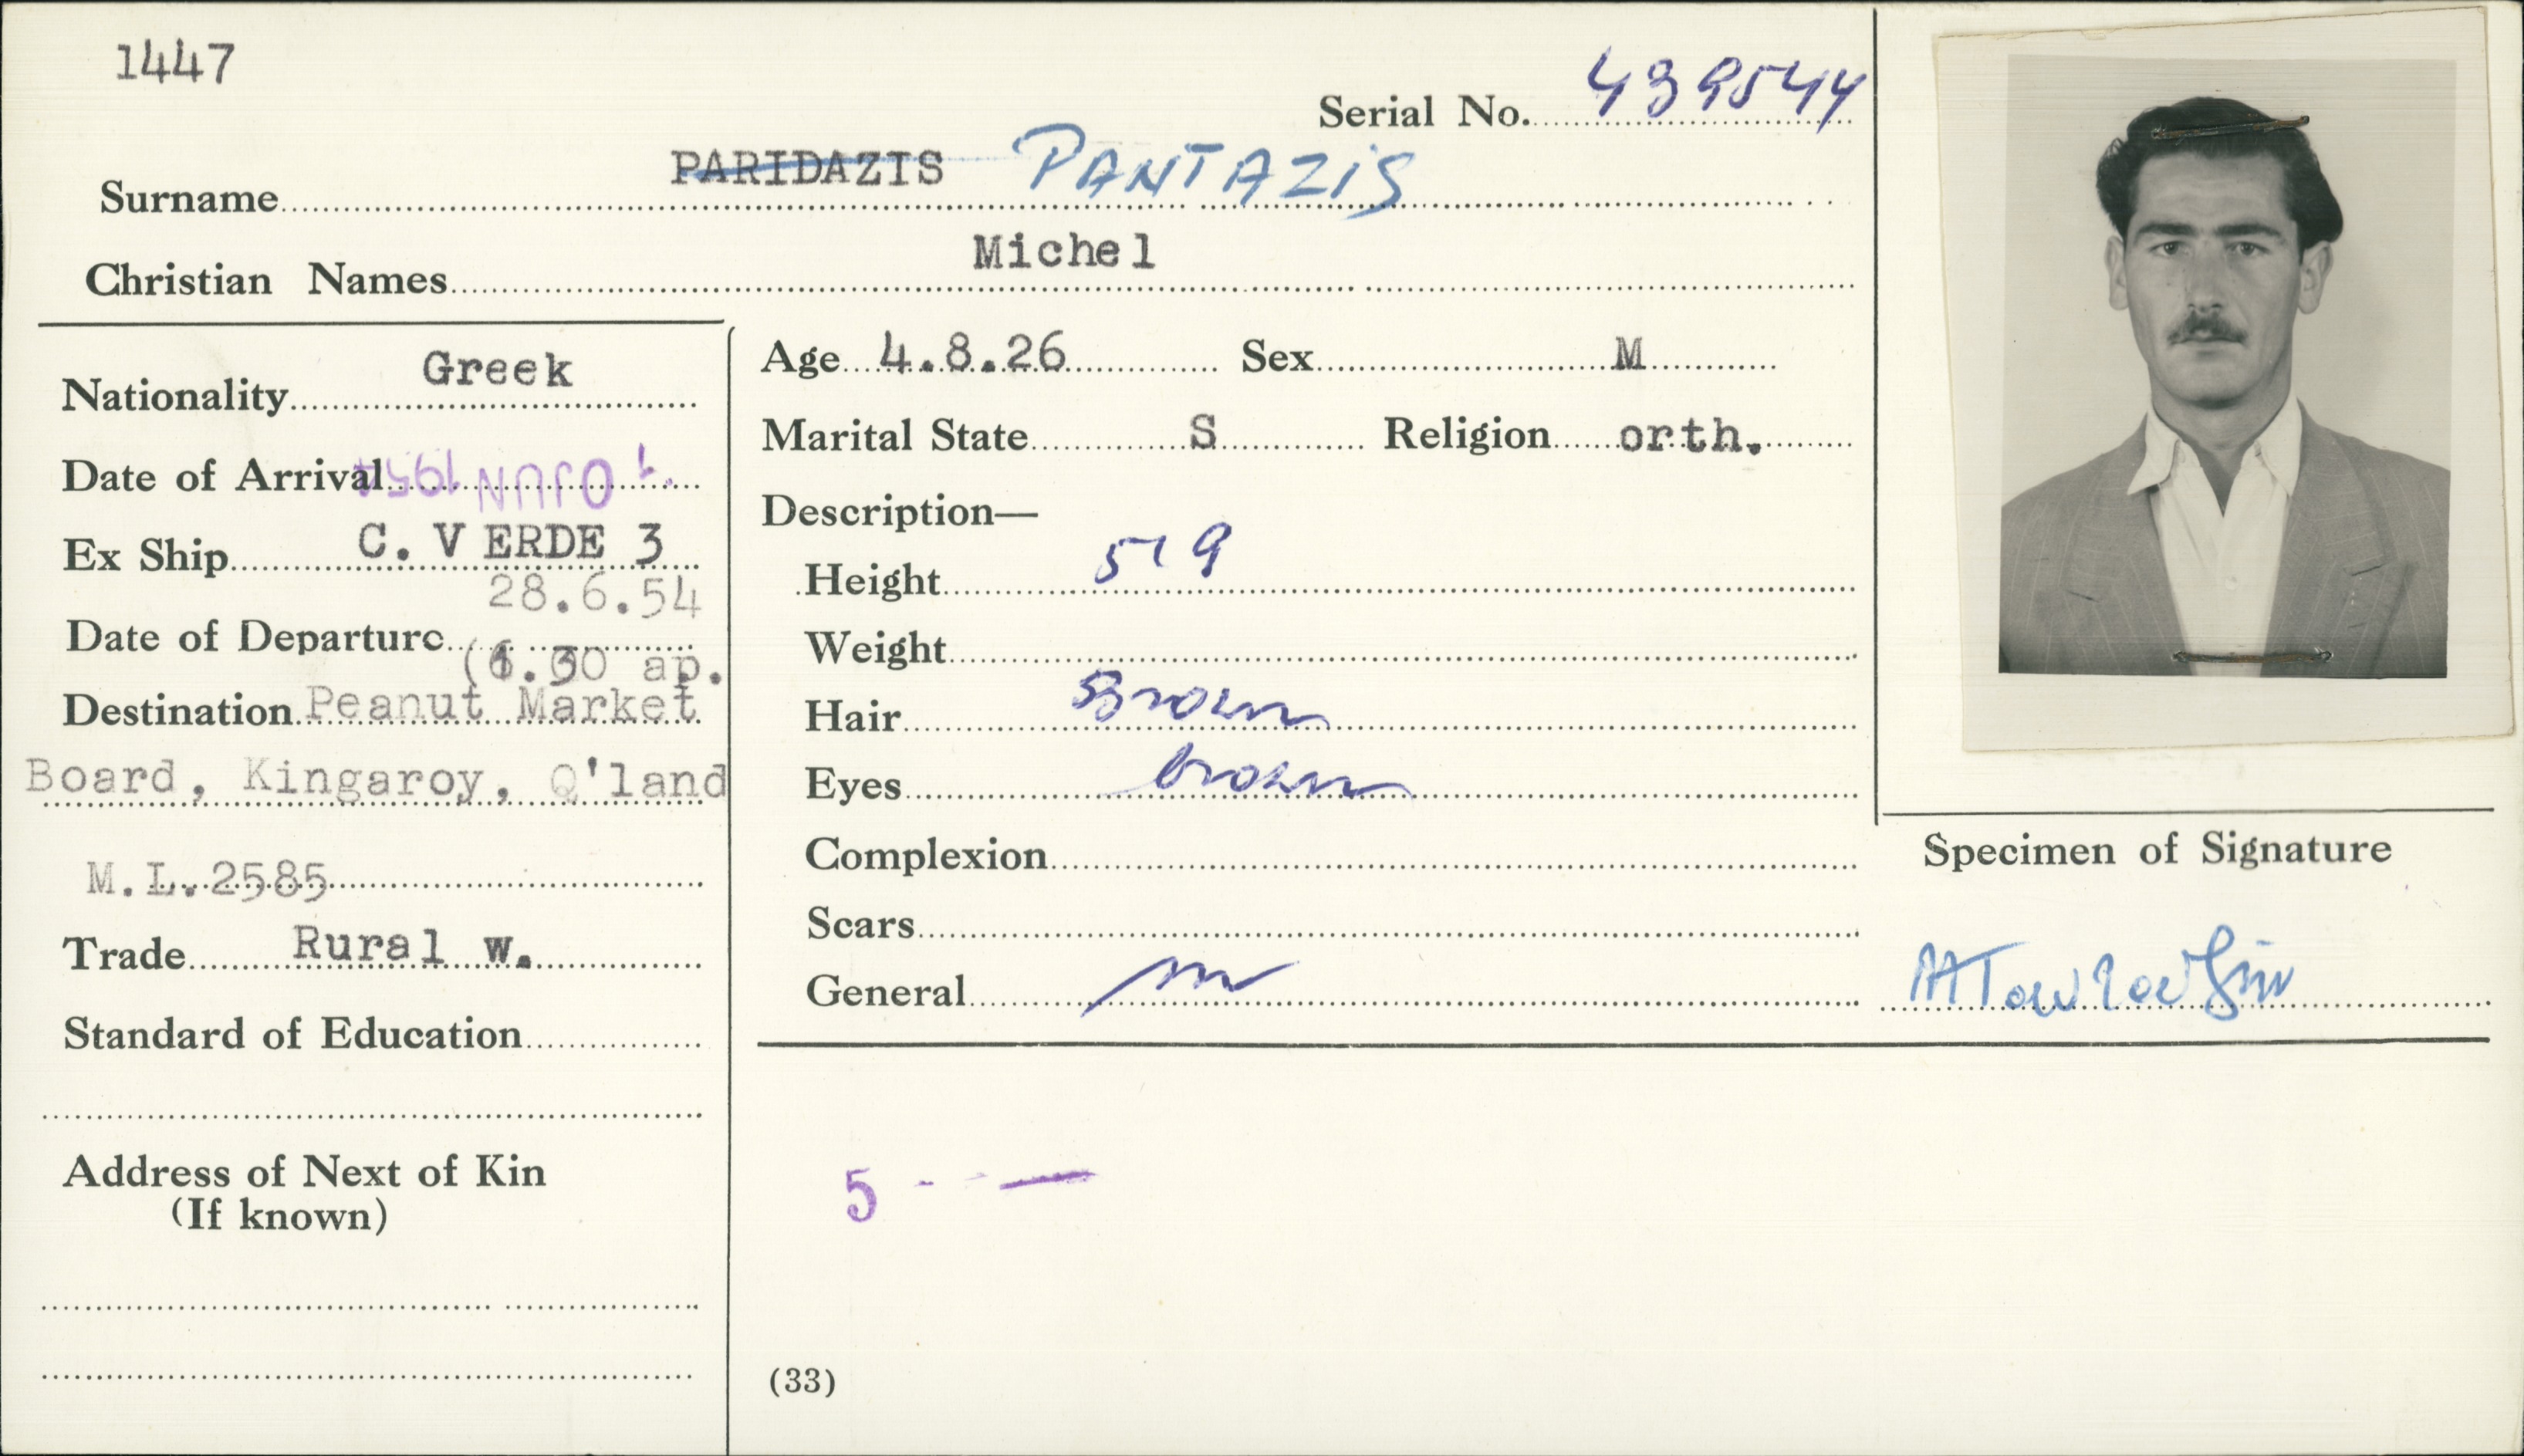 1447
Serial No. 439544
Surname PARIDAZIS PANTAZIS
Christian Names Michel
Nationality Greek
Date of Arrival JUN 1954
Ex Ship C. VERDE 3
Date of Departure 28.6.54
Destination Peanut Market
Board, Kingaroy, Q'land
M.L.2585
Trade Rural w.
Standard of Education
Address of Next of Kin
(If known)
Age 4.8.26 Sex M
Marital State S Religion orth.
Description—
Height 5'9
Weight
Hair Brown
Eyes brown
Complexion
Scars
General
5 - —
(33)
Specimen of Signature